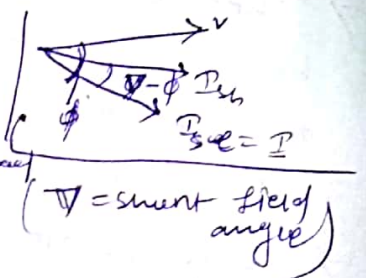 v
∇-φ
I_sh
φ
I_se = I
(∇ = shunt field
angle)